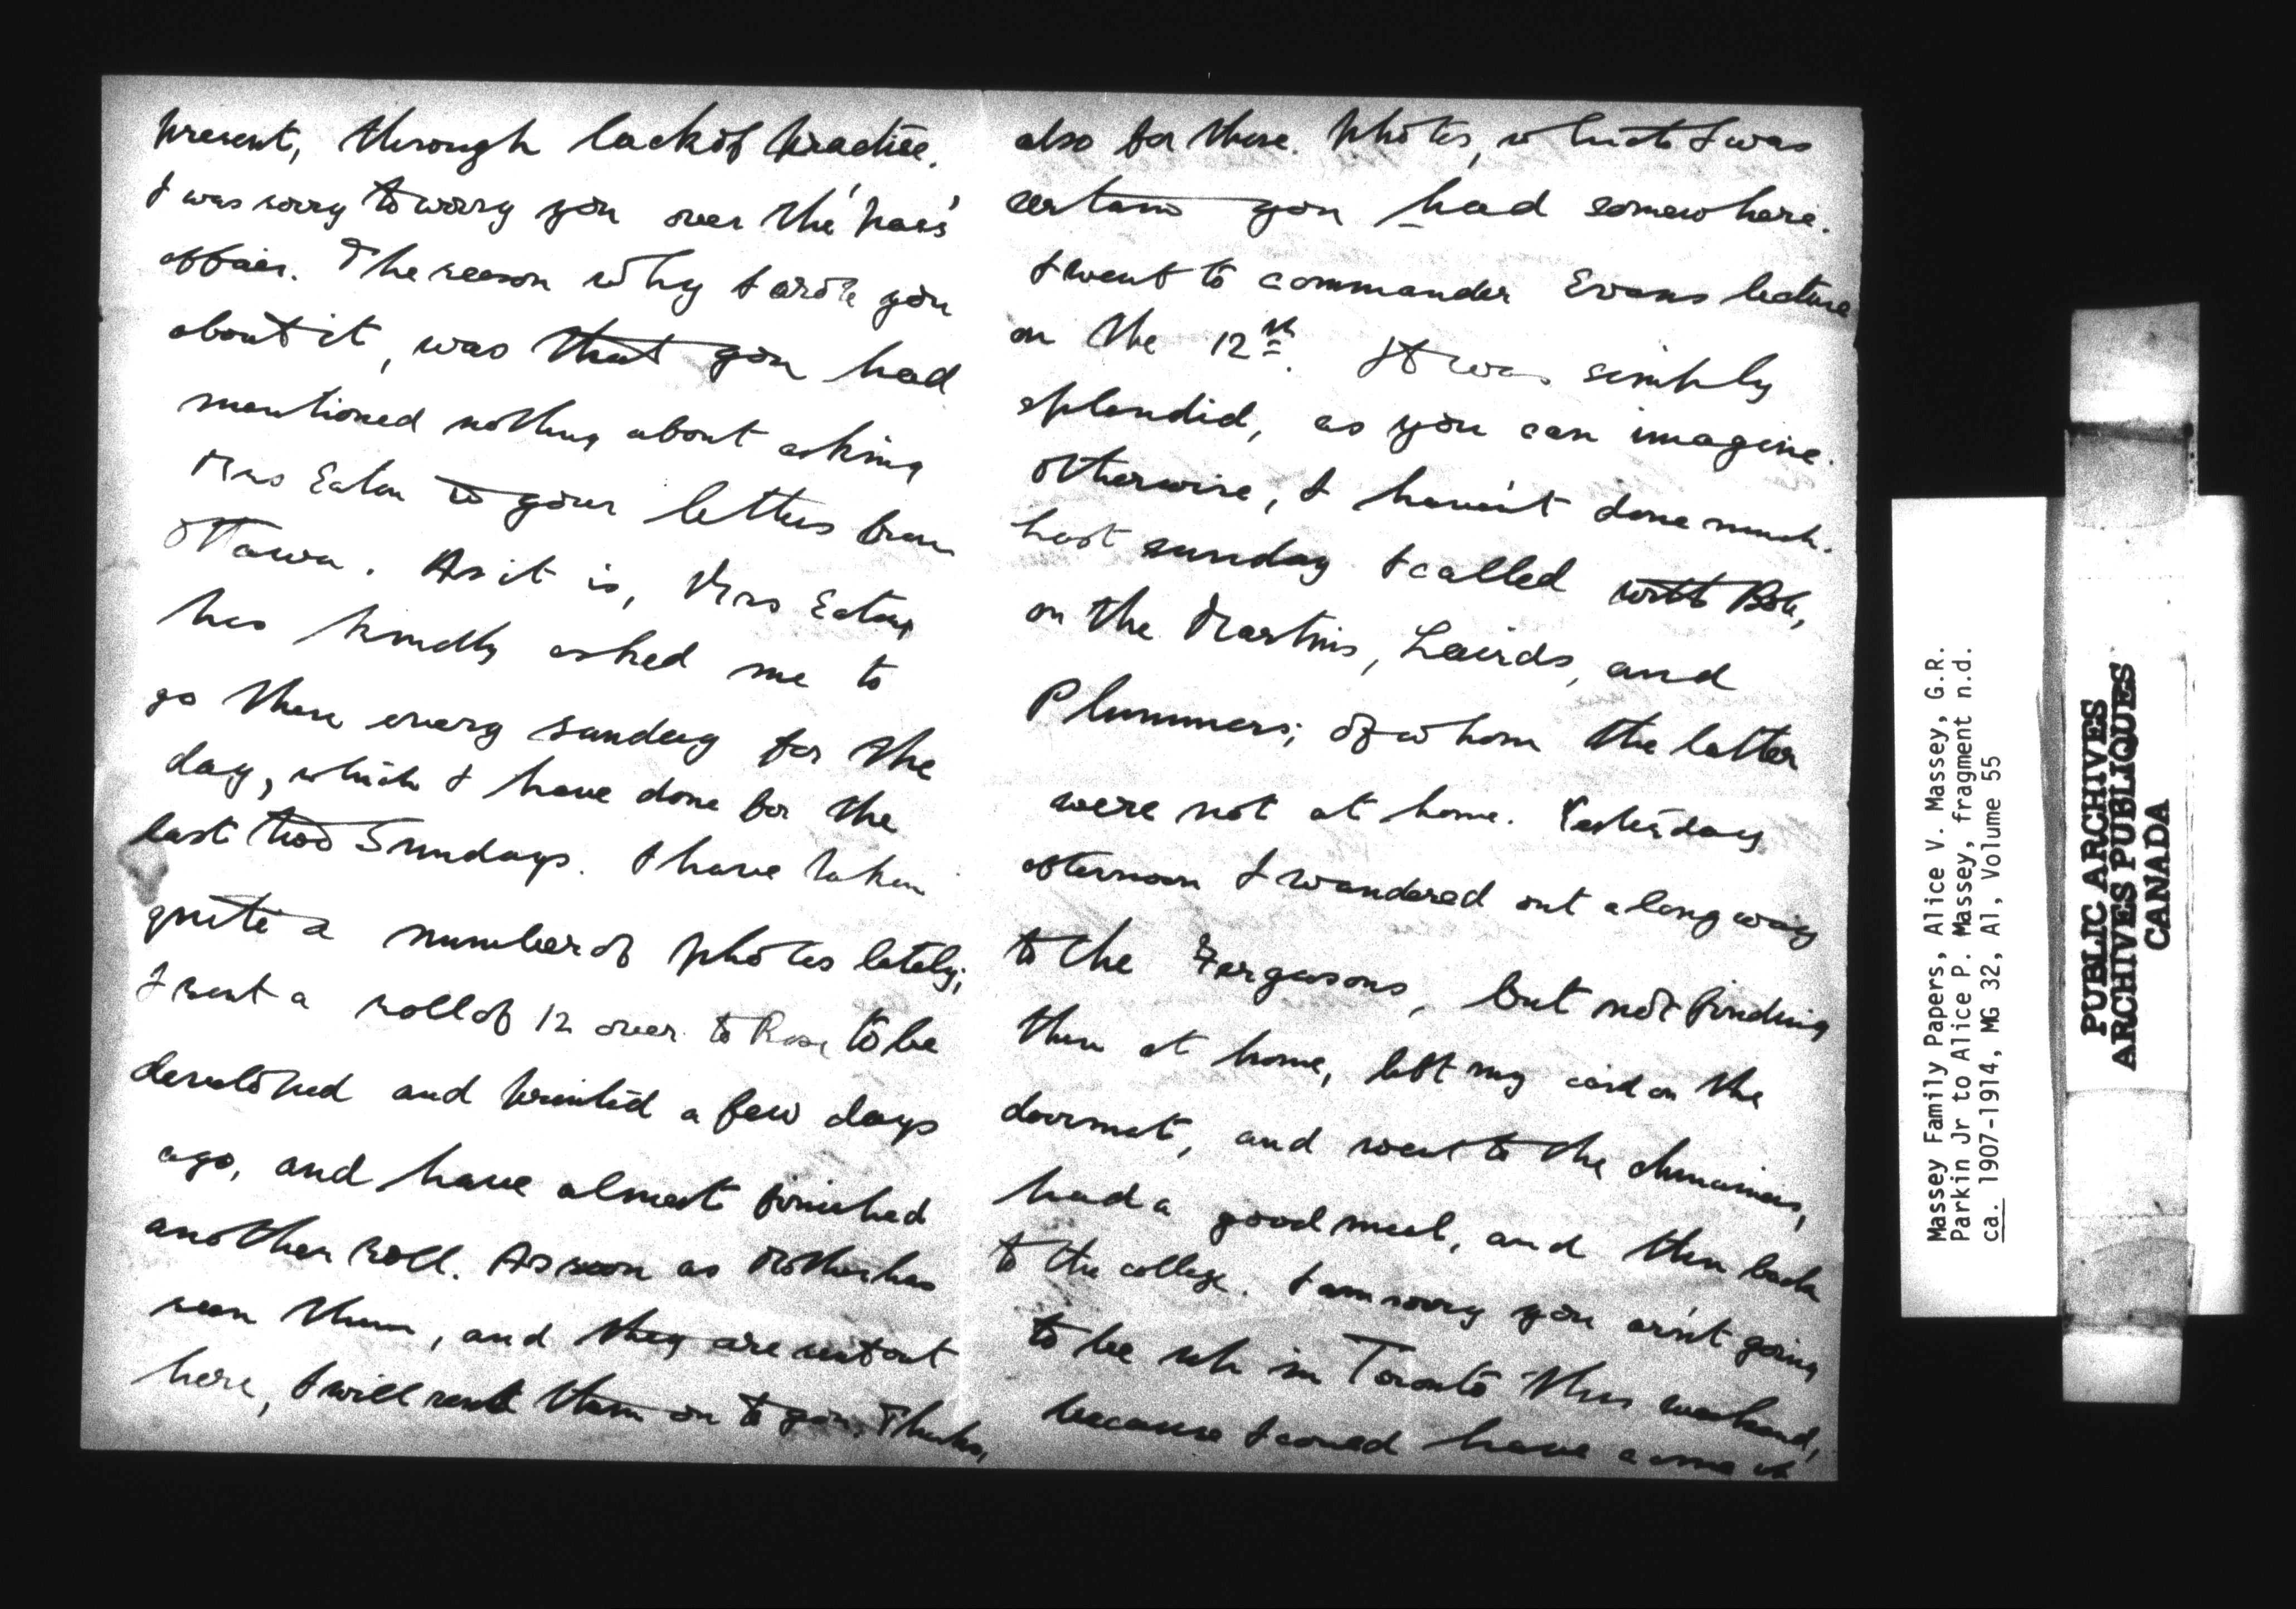 present, through lack of practice.
I was sorry to worry you over the
affair. The reason why I wrote you
about it, was that you had
mentioned nothing about asking
Mrs Eaton in your letters from
Ottawa. As it is, Mrs Eaton
has kindly asked me to
go there every sunday for the
day, which I have done for the
last two Sundays. I have taken
quite a number of photos lately;
I sent a roll of 12 over to Ross to be
developed and printed a few days
ago, and have almost finished
another roll. As soon as Mother has
seen them, and they are sent out
here, I will send them on to you. Thanks,
also for those photos, which I was
certain you had somewhere.
I went to commander Evans lecture
on the 12th. It was simply
splendid, as you can imagine.
Otherwise, I haven't done much.
Last sunday I called with Bob,
on the Martins, Lairds, and
Plummers; of whom the latter
were not at home. Yesterday
afternoon I wandered out a long way
to the Fergusons, but not finding
them at home, left my card on the
doormat, and went to the
had a good meal, and then back
to the college. I am sorry you arn't going
to be in Toronto this weekend,
because I could have come
Massey Family Papers, Alice V. Massey, G.R.
Parkin Jr to Alice P. Massey, fragment n.d.
ca. 1907-1914, MG 32, A1, Volume 55
PUBLIC ARCHIVES
ARCHIVES PUBLIQUES
CANADA